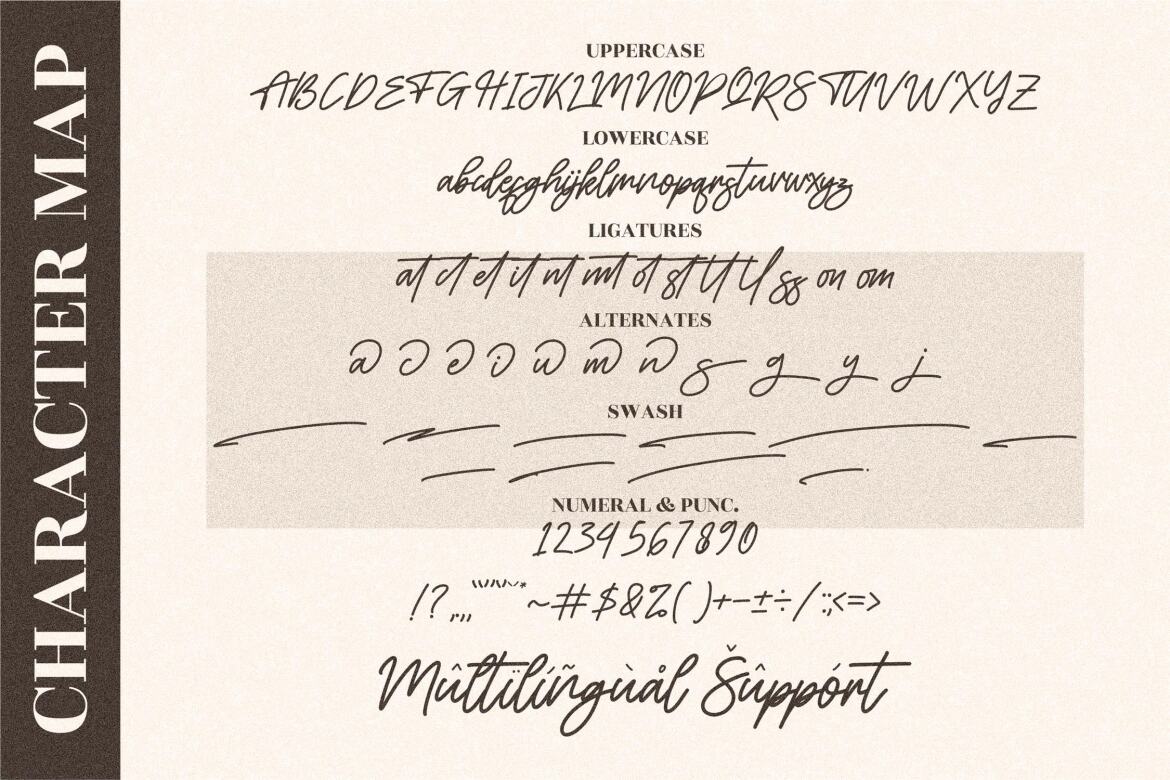 CHARACTER MAP
UPPERCASE
ABCDEFGHIJKLMNOPQRSTUVWXYZ
LOWERCASE
abcdefghijklmnopqrstuvwxyz
LIGATURES
at ct et it nt mt ot st tt tl ss on om
ALTERNATES
a c e i u m n s g y j
SWASH
NUMERAL & PUNC.
1234567890
~#$&%()+−±÷/:;<=>
Mûltïlíñgùål Šûppórt